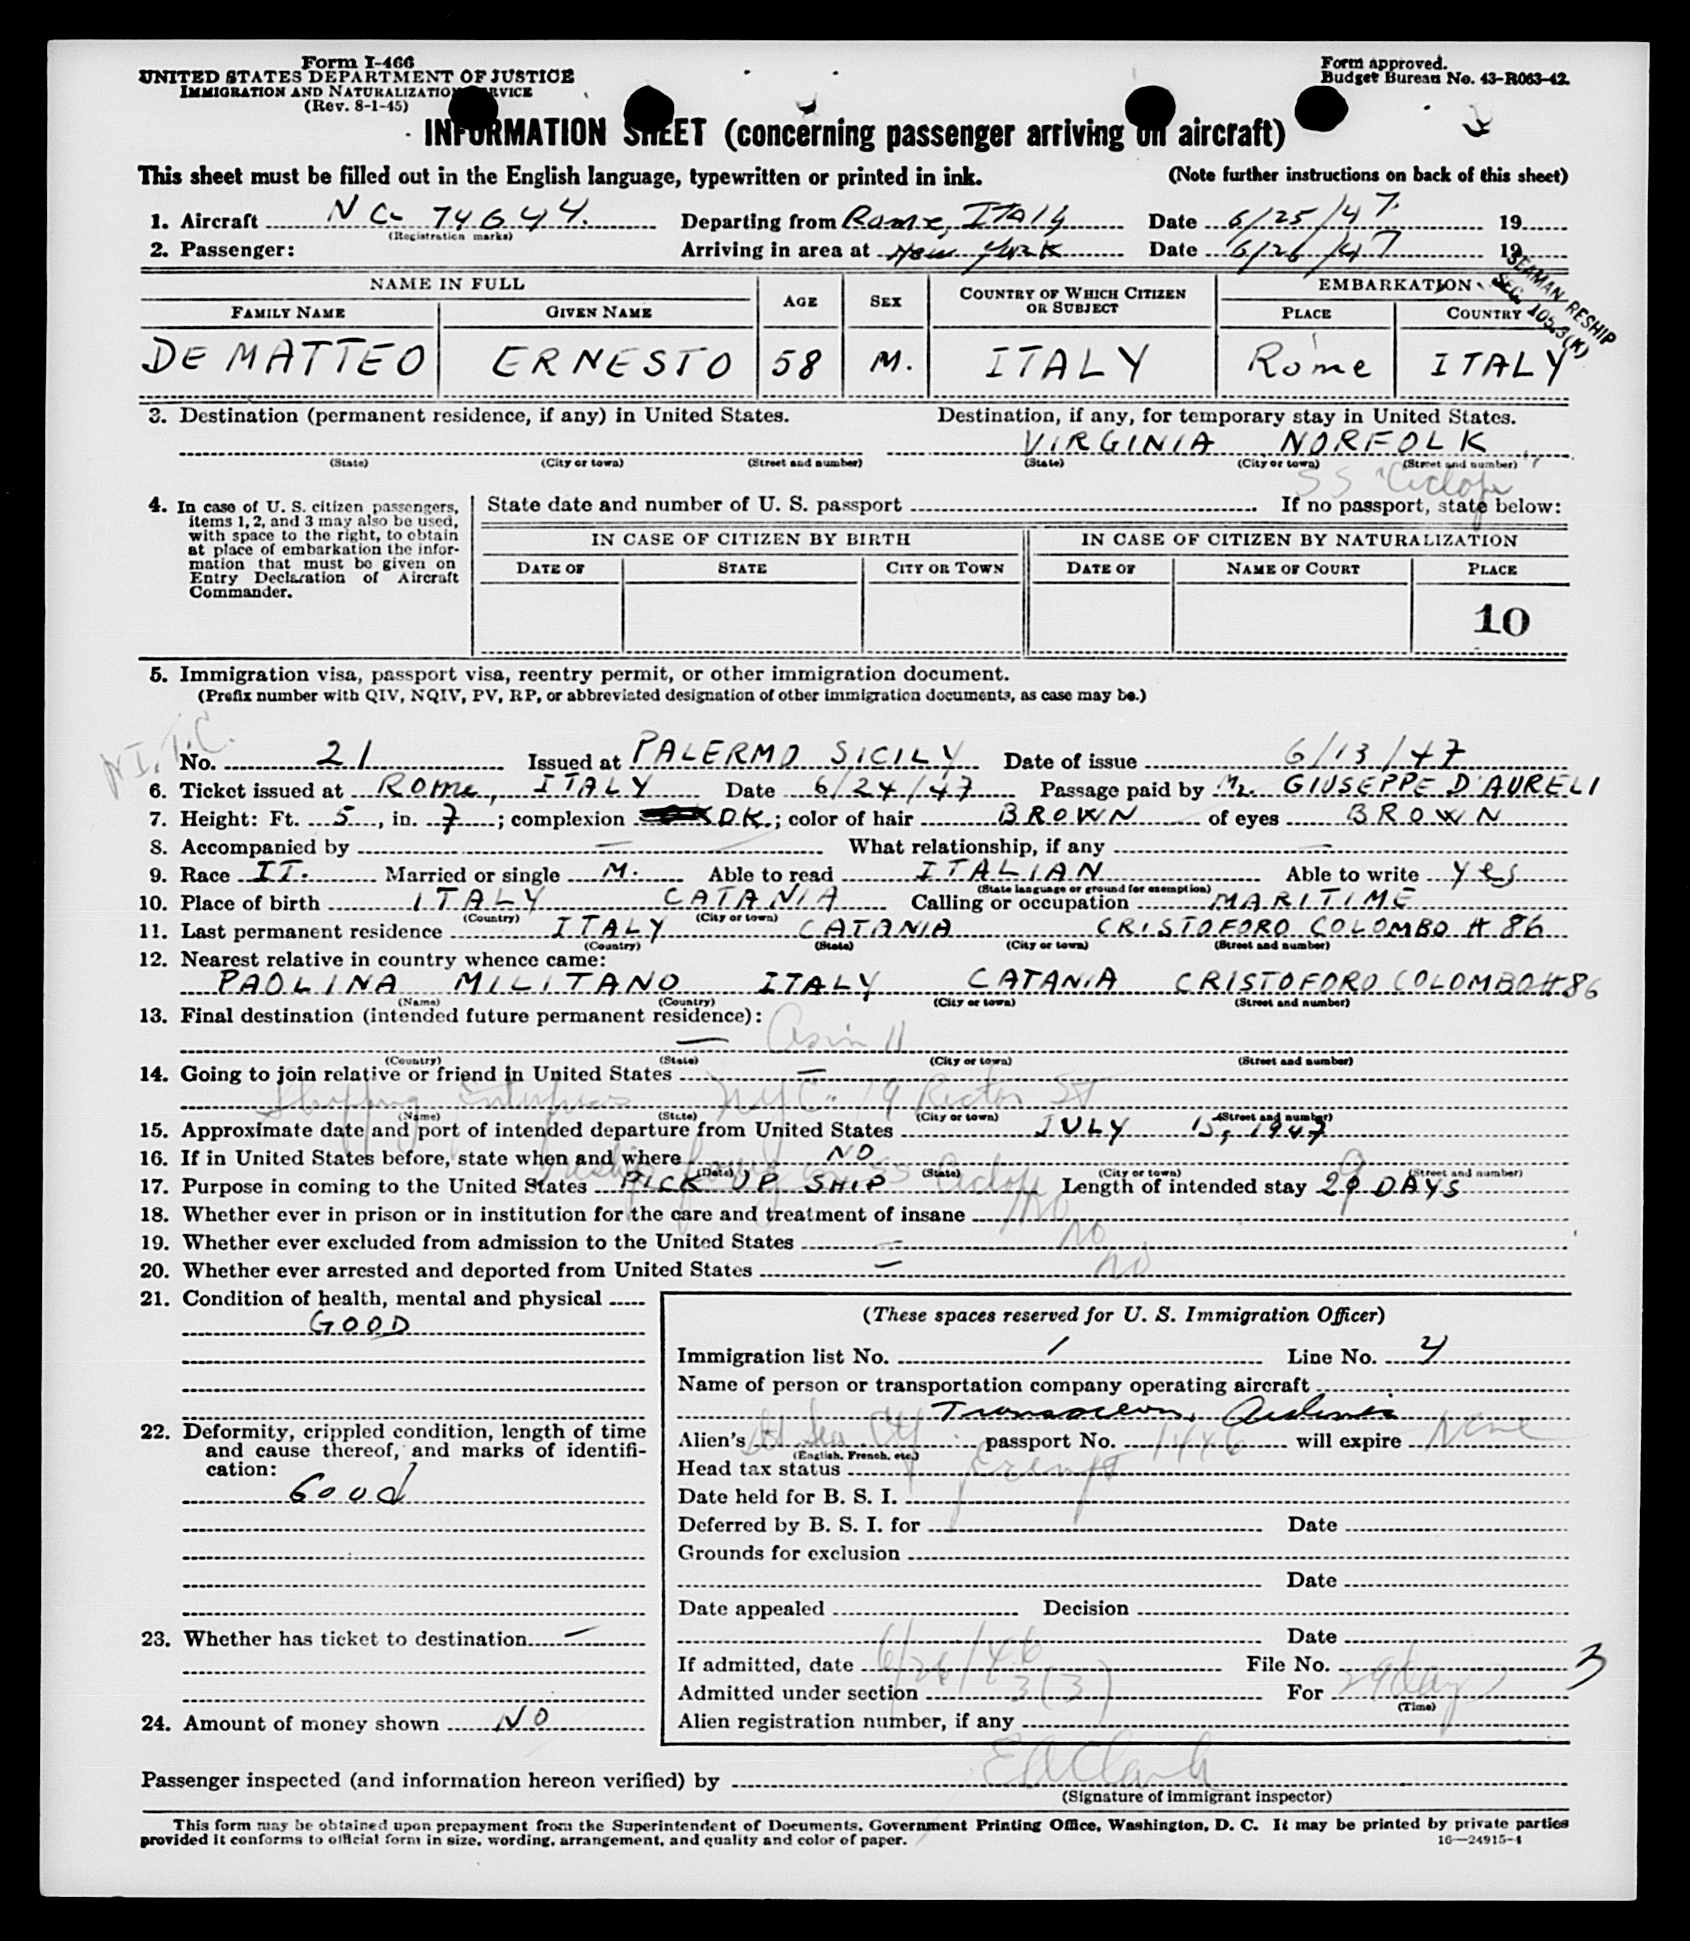 Form I-466
UNITED STATES DEPARTMENT OF JUSTICE
IMMIGRATION AND NATURALIZATION SERVICE
(Rev. 8-1-45)
Form approved.
Budget Bureau No. 43-R063-42.
INFORMATION SHEET (concerning passenger arriving on aircraft)
This sheet must be filled out in the English language, typewritten or printed in ink. (Note further instructions on back of this sheet)
1. Aircraft NC- 74644. Departing from Rome, ITALY Date 6/25/47. 19
(Registration marks)
2. Passenger: Arriving in area at New York Date 6/26/47 19
SEAMAN RESHIP
SEC. 105.3(K)
NAME IN FULL AGE SEX COUNTRY OF WHICH CITIZEN OR SUBJECT EMBARKATION
FAMILY NAME GIVEN NAME PLACE COUNTRY
DE MATTEO ERNESTO 58 M. ITALY Rome ITALY
3. Destination (permanent residence, if any) in United States. Destination, if any, for temporary stay in United States.
VIRGINIA NORFOLK
(State) (City or town) (Street and number) (State) (City or town) (Street and number)
SS "Ciclope"
4. In case of U. S. citizen passengers, items 1, 2, and 3 may also be used, with space to the right, to obtain at place of embarkation the information that must be given on Entry Declaration of Aircraft Commander.
State date and number of U. S. passport If no passport, state below:
IN CASE OF CITIZEN BY BIRTH IN CASE OF CITIZEN BY NATURALIZATION
DATE OF STATE CITY OR TOWN DATE OF NAME OF COURT PLACE
10
5. Immigration visa, passport visa, reentry permit, or other immigration document.
(Prefix number with QIV, NQIV, PV, RP, or abbreviated designation of other immigration documents, as case may be.)
No. 21 Issued at PALERMO SICILY Date of issue 6/13/47
6. Ticket issued at ROme, ITALY Date 6/24/47 Passage paid by Mr. GIUSEPPE D'AURELI
7. Height: Ft. 5, in. 7; complexion DK.; color of hair BROWN of eyes BROWN
8. Accompanied by — What relationship, if any —
9. Race IT. Married or single M. Able to read ITALIAN Able to write Yes
(State language or ground for exemption)
10. Place of birth ITALY CATANIA Calling or occupation MARITIME
(Country) (City or town)
11. Last permanent residence ITALY CATANIA CRISTOFORO COLOMBO # 86
(Country) (State) (City or town) (Street and number)
12. Nearest relative in country whence came:
PAOLINA MILITANO ITALY CATANIA CRISTOFORO COLOMBO # 86
(Name) (Country) (City or town) (Street and number)
13. Final destination (intended future permanent residence):
—
(Country) (State) (City or town) (Street and number)
14. Going to join relative or friend in United States —
Shipping Enterprises NYC. 19 Rector St
(Name) (State) (City or town) (Street and number)
15. Approximate date and port of intended departure from United States JULY 15, 1947
16. If in United States before, state when and where NO
(Date) (State) (City or town) (Street and number)
17. Purpose in coming to the United States PICK UP SHIP Length of intended stay 29 DAYS
18. Whether ever in prison or in institution for the care and treatment of insane No
19. Whether ever excluded from admission to the United States — No
20. Whether ever arrested and deported from United States — No
21. Condition of health, mental and physical
GOOD
22. Deformity, crippled condition, length of time and cause thereof, and marks of identification:
Good
23. Whether has ticket to destination —
24. Amount of money shown NO
(These spaces reserved for U. S. Immigration Officer)
Immigration list No. 1 Line No. 4
Name of person or transportation company operating aircraft
Transocean, Airlines
Alien's passport No. 1446 will expire None
(English, French, etc.)
Head tax status Exempt
Date held for B. S. I.
Deferred by B. S. I. for Date
Grounds for exclusion
Date
Date appealed Decision
Date
If admitted, date 6/26/46 File No. 3
Admitted under section 3(3) For 29 days
(Time)
Alien registration number, if any
Passenger inspected (and information hereon verified) by EA Clark
(Signature of immigrant inspector)
This form may be obtained upon prepayment from the Superintendent of Documents, Government Printing Office, Washington, D. C. It may be printed by private parties
provided it conforms to official form in size, wording, arrangement, and quality and color of paper. 16—24915-1